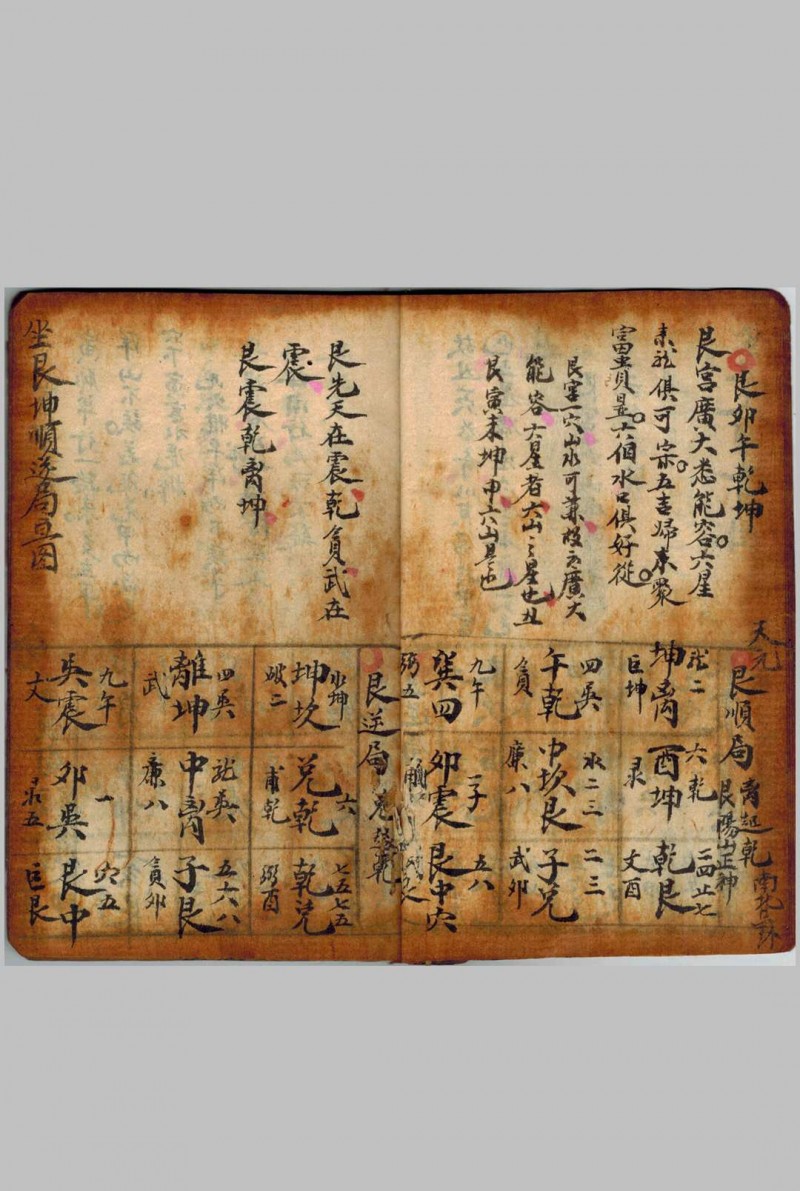 艮卯午乾坤
艮宮廣大悉能容六星
来龙俱可宗五吉归来聚
富貴昱六伯水口俱好從
艮宮一穴山水可兼收云廣大
能容六星者六山之星也丑
艮寅未坤申六山是也
天元
艮順局
离起乾
艮陽山正神
南北卦
龙二
坤离
巨坤
六乾
酉坤
录
二四七
乾艮
文酉
四吳
午乾
貪
水二三
中坎艮
廉八
二三
子兌
武卯
九午
巽四
弼五
一子
卯震
五八
艮中六
艮先天在震乾貪武在
震
艮震乾离坤
艮逆局
水坤
坤坎
破二
六
兌乾
甫乾
七五七五
乾兌
弼酉
四吳
離坤
武
龙吳
中离
廉八
五六八
子艮
貪卯
九午
吳震
文
一
卯吳
录五
六五
艮中
巨艮
坐艮坤順逆局星图